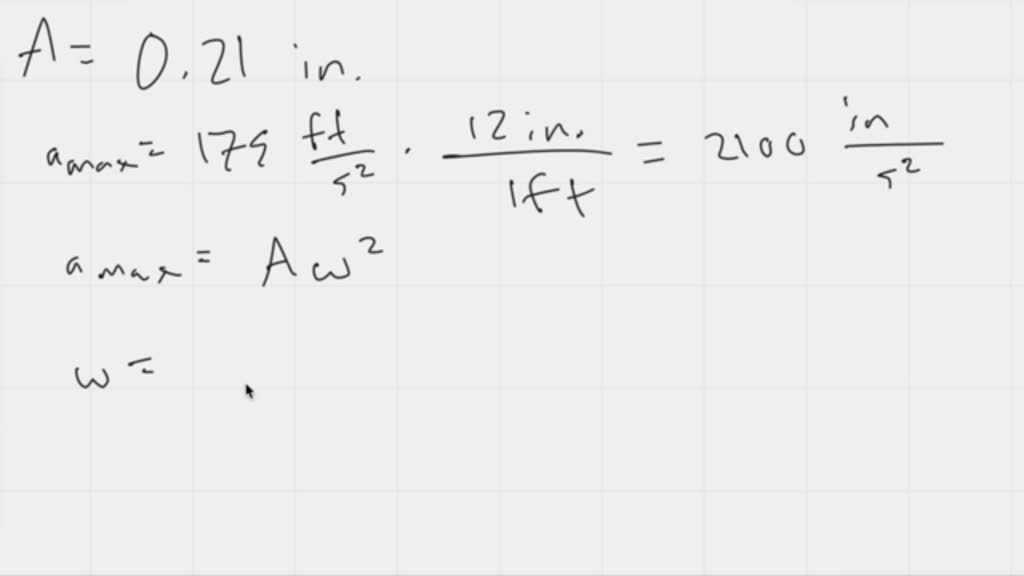 A = 0.21 in.
a_max = 175 ft/s² · 12 in./1ft = 2100 in/s²
a_max = Aω²
ω =